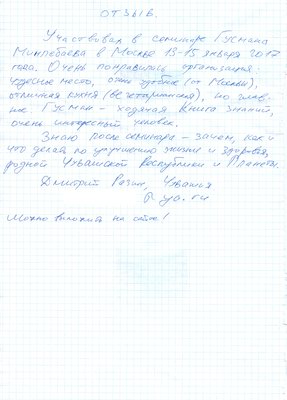 ОТЗЫВ.
Участвовал в семинаре Гусмана
Минлебаева в Москве 13-15 января 2017
года. Очень понравилась организация -
чудесное место, очень удобное (от Москвы),
отличная кухня (вегетарианская), но глав-
ное Гусман - ходячая Книга Знаний,
очень интересный человек.
Знаю после семинара - зачем, как и
что делать по улучшению жизни и здоровья,
родной Чувашской Республики и Планеты.
Дмитрий Разин, Чувашия
ya.ru
Можно выложить на сайте!